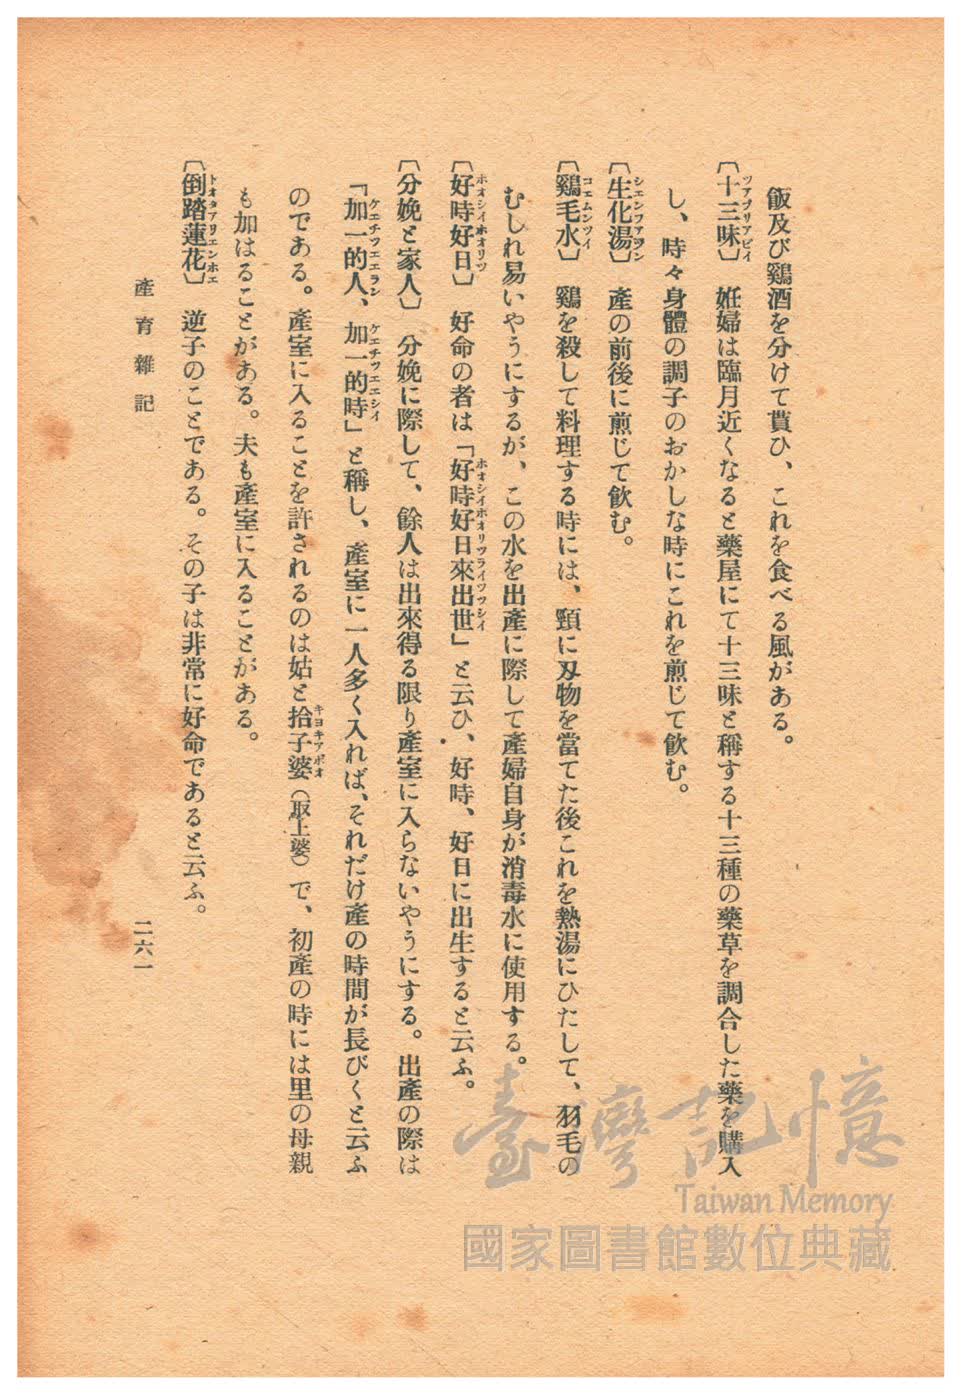 飯及び鷄酒を分けて貰ひ、これを食べる風がある。
〔十三味〕　姙婦は臨月近くなると藥屋にて十三味と稱する十三種の藥草を調合した藥を購入
し、時々身體の調子のおかしな時にこれを煎じて飮む。
〔生化湯〕　產の前後に煎じて飮む。
〔鷄毛水〕　鷄を殺して料理する時には、頸に刄物を當てた後これを熱湯にひたして、羽毛の
むしれ易いやうにするが、この水を出產に際して產婦自身が消毒水に使用する。
〔好時好日〕　好命の者は「好時好日來出世」と云ひ、好時、好日に出生すると云ふ。
〔分娩と家人〕　分娩に際して、餘人は出來得る限り產室に入らないやうにする。出產の際は
「加一的人、加一的時」と稱し、產室に一人多く入れば、それだけ產の時間が長びくと云ふ
のである。產室に入ることを許されるのは姑と拾子婆（取上婆）で、初產の時には里の母親
も加はることがある。夫も產室に入ることがある。
〔倒踏蓮花〕　逆子のことである。その子は非常に好命であると云ふ。
產育雜記
二六一
臺灣記憶
Taiwan Memory
國家圖書館數位典藏